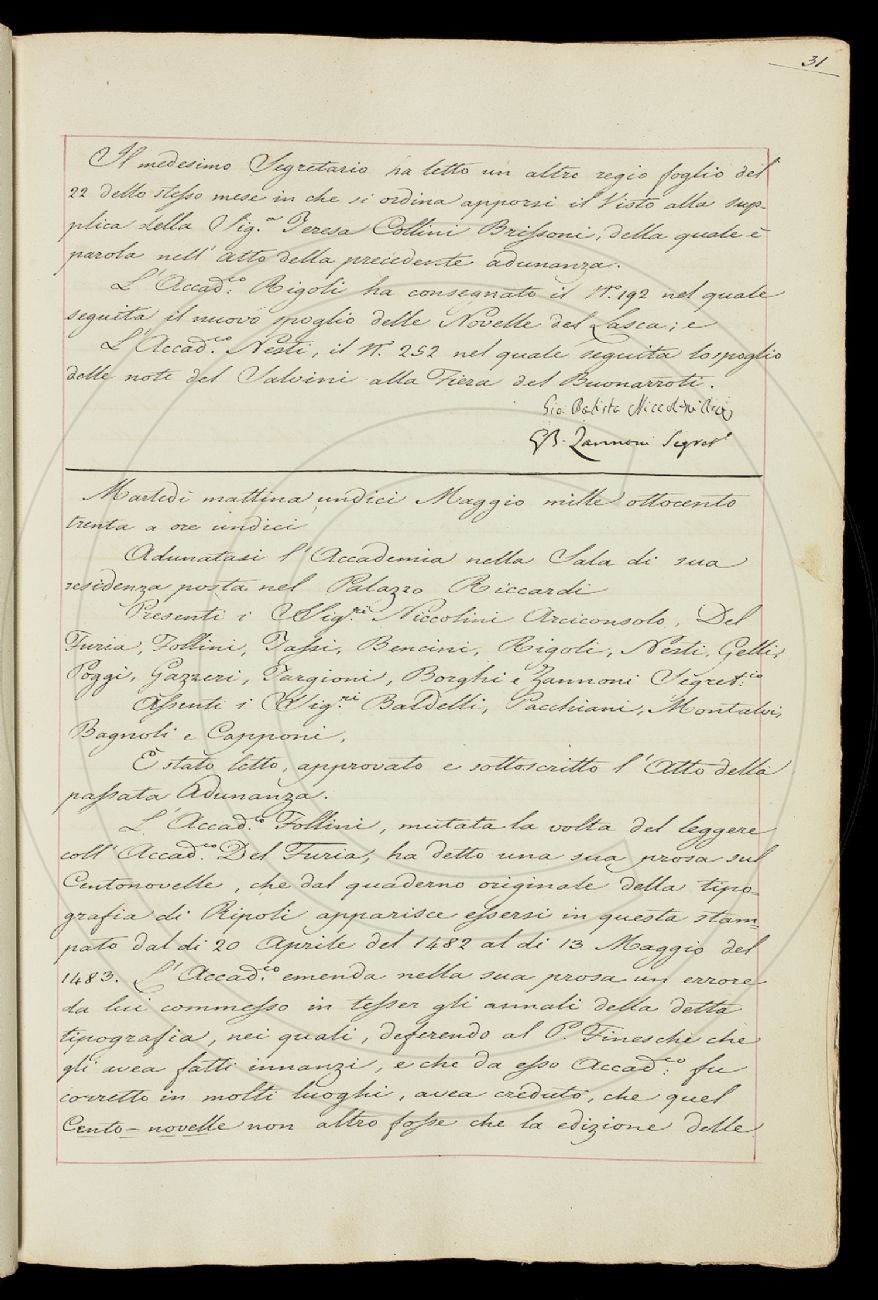 31
Il medesimo Segretario ha letto un altro regio foglio del
22 dello stesso mese in che si ordina apporsi il Visto alla sup-
plica della Sig.ª Teresa Collini Brissoni, della quale è
parola nell' Atto della precedente adunanza.
L' Accad.co Rigoli ha consegnato il N.º 192 nel quale
seguita il nuovo spoglio delle Novelle del Lasca; e
L' Accad.co Nesti, il N.º 252 nel quale seguita lo spoglio
delle note del Salvini alla Fiera del Buonarroti.
Gio. Batista Niccolini
G.B. Zannoni Segret.
Martedì mattina undici Maggio mille ottocento
trenta a ore undici
Adunatasi l' Accademia nella Sala di sua
residenza posta nel Palazzo Riccardi
Presenti i SSig.ri Niccolini Arciconsolo, Del
Furia, Follini, Tassi, Bencini, Rigoli, Nesti, Gelli,
Poggi, Gazzeri, Targioni, Borghi e Zannoni Segret.io
Assenti i SSig.ri Baldelli, Pacchiani, Montalvi,
Bagnoli e Capponi.
È stato letto, approvato e sottoscritto l' Atto della
passata Adunanza.
L' Accad.co Follini, mutata la volta del leggere
coll' Accad.co Del Furia, ha detto una sua prosa sul
Centonovelle, che dal quaderno originale della tipo-
grafia di Ripoli apparisce essersi in questa stam-
pato dal dì 20 Aprile del 1482 al dì 13 Maggio del
1483. L' Accad.co emenda nella sua prosa un errore
da lui commesso in tesser gli annali della detta
tipografia, nei quali, deferendo al P. Fineschi che
gli avea fatti innanzi, e che da esso Accad.co fu
corretto in molti luoghi, avea creduto, che quel
Cento-novelle non altro fosse che la edizione delle